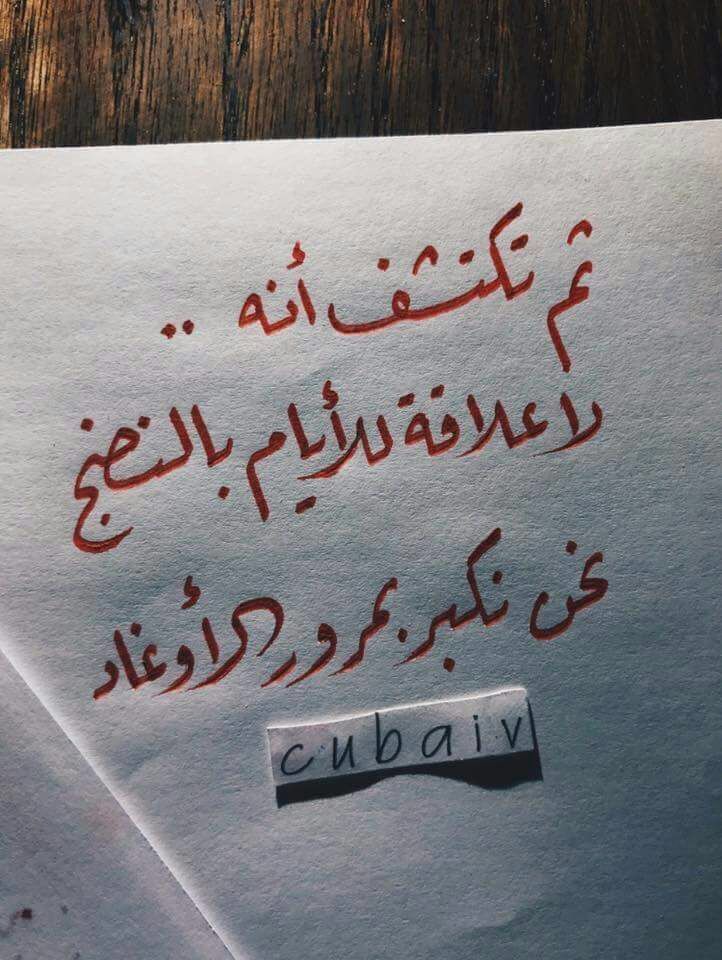 ثم تكتشف أنه ..
لا علاقة للأيام بالنضج
نحن نكبر بمرور الأوغاد
cubaiv